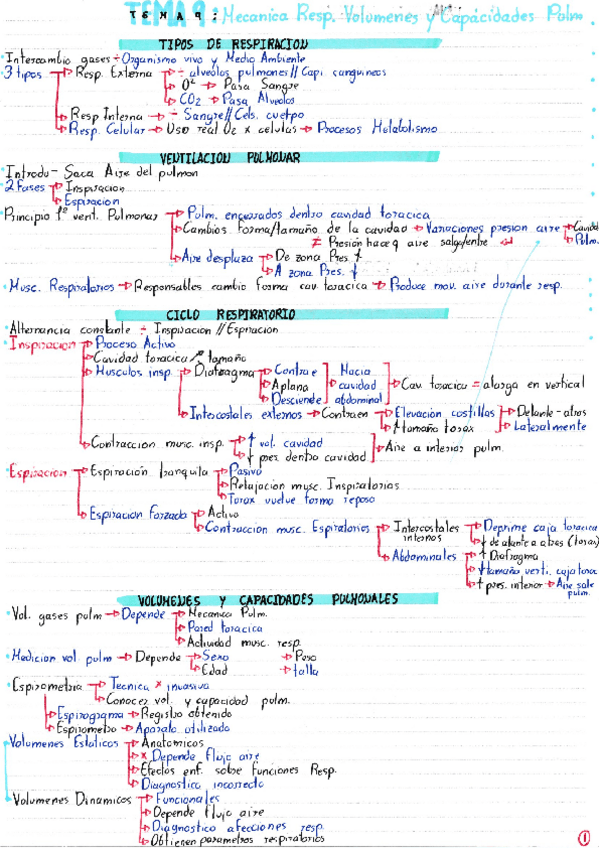 TEMA 9: Mecanica Resp. Volumenes y Capacidades Pulm
TIPOS DE RESPIRACION
Intercambio gases ÷ Organismo vivo y Medio Ambiente
3 tipos → Resp. Externa → ÷ alveolos pulmones // Capi. sanguineos
→ O² → Pasa Sangre
→ CO2 → Pasa Alveolos
→ Resp Interna → ÷ Sangre // Cels. cuerpo
→ Resp. Celular → Uso real O2 x celulas → Procesos Metabolismo
VENTILACION PULMONAR
Introdu - Saca Aire del pulmon
2 Fases → Inspiracion
→ Espiracion
Principio 1º vent. Pulmonar → Pulm. encerrados dentro cavidad toracica
→ Cambios forma/tamaño de la cavidad → Variaciones presion aire → Cavidad
≠ Presion hace q aire salga/entre → Pulm.
→ Aire desplaza → De zona Pres. ↑
→ A zona Pres. ↓
Musc. Respiratorios → Responsables cambio forma cav. toracica → Produce mov. aire durante resp.
CICLO RESPIRATORIO
Alternancia constante ÷ Inspiracion // Espiracion
Inspiracion → Proceso Activo
→ Cavidad toracica ↗ tamaño
→ Musculos insp. → Diafragma → Contrae Hacia
→ Aplana cavidad → Cav. toracica = alarga en vertical
→ Desciende abdominal
→ Intercostales externos → Contraen → Elevación costillas → Delante-atras
→ ↑ tamaño torax → Lateralmente
→ Contraccion musc. insp. → ↑ vol. cavidad
→ ↓ pres. dentro cavidad → Aire a interior pulm.
Espiracion → Espiración tranquila → Pasivo
→ Relajacion musc. Inspiratorios
→ Torax vuelve forma reposo
→ Espiracion Forzada → Activo
→ Contraccion musc. Espiratorios → Intercostales internos → Deprime caja toracica
→ ↓ delante a atras (torax)
→ Abdominales → ↑ Diafragma
→ ↓ tamaño verti. caja torax
→ ↑ pres. interior → Aire sale pulm.
VOLUMENES Y CAPACIDADES PULMONALES
Vol. gases pulm → Depende → Mecanica Pulm.
→ Pared toracica
→ Actividad musc. resp.
Medicion vol. pulm → Depende → Sexo → Peso
→ Edad → talla
Espirometria → Tecnica x invasiva
→ Conocer vol. y capacidad pulm.
→ Espirograma → Registro obtenido
→ Espirometro → Aparato utilizado
Volumenes Estaticos → Anatomicos
→ x Depende flujo aire
→ Efectos enf. sobre funciones Resp.
→ Diagnostico incorrecto
Volumenes Dinamicos → Funcionales
→ Depende flujo aire
→ Diagnostico afecciones resp.
→ Obtienen parametros respiratorios
1